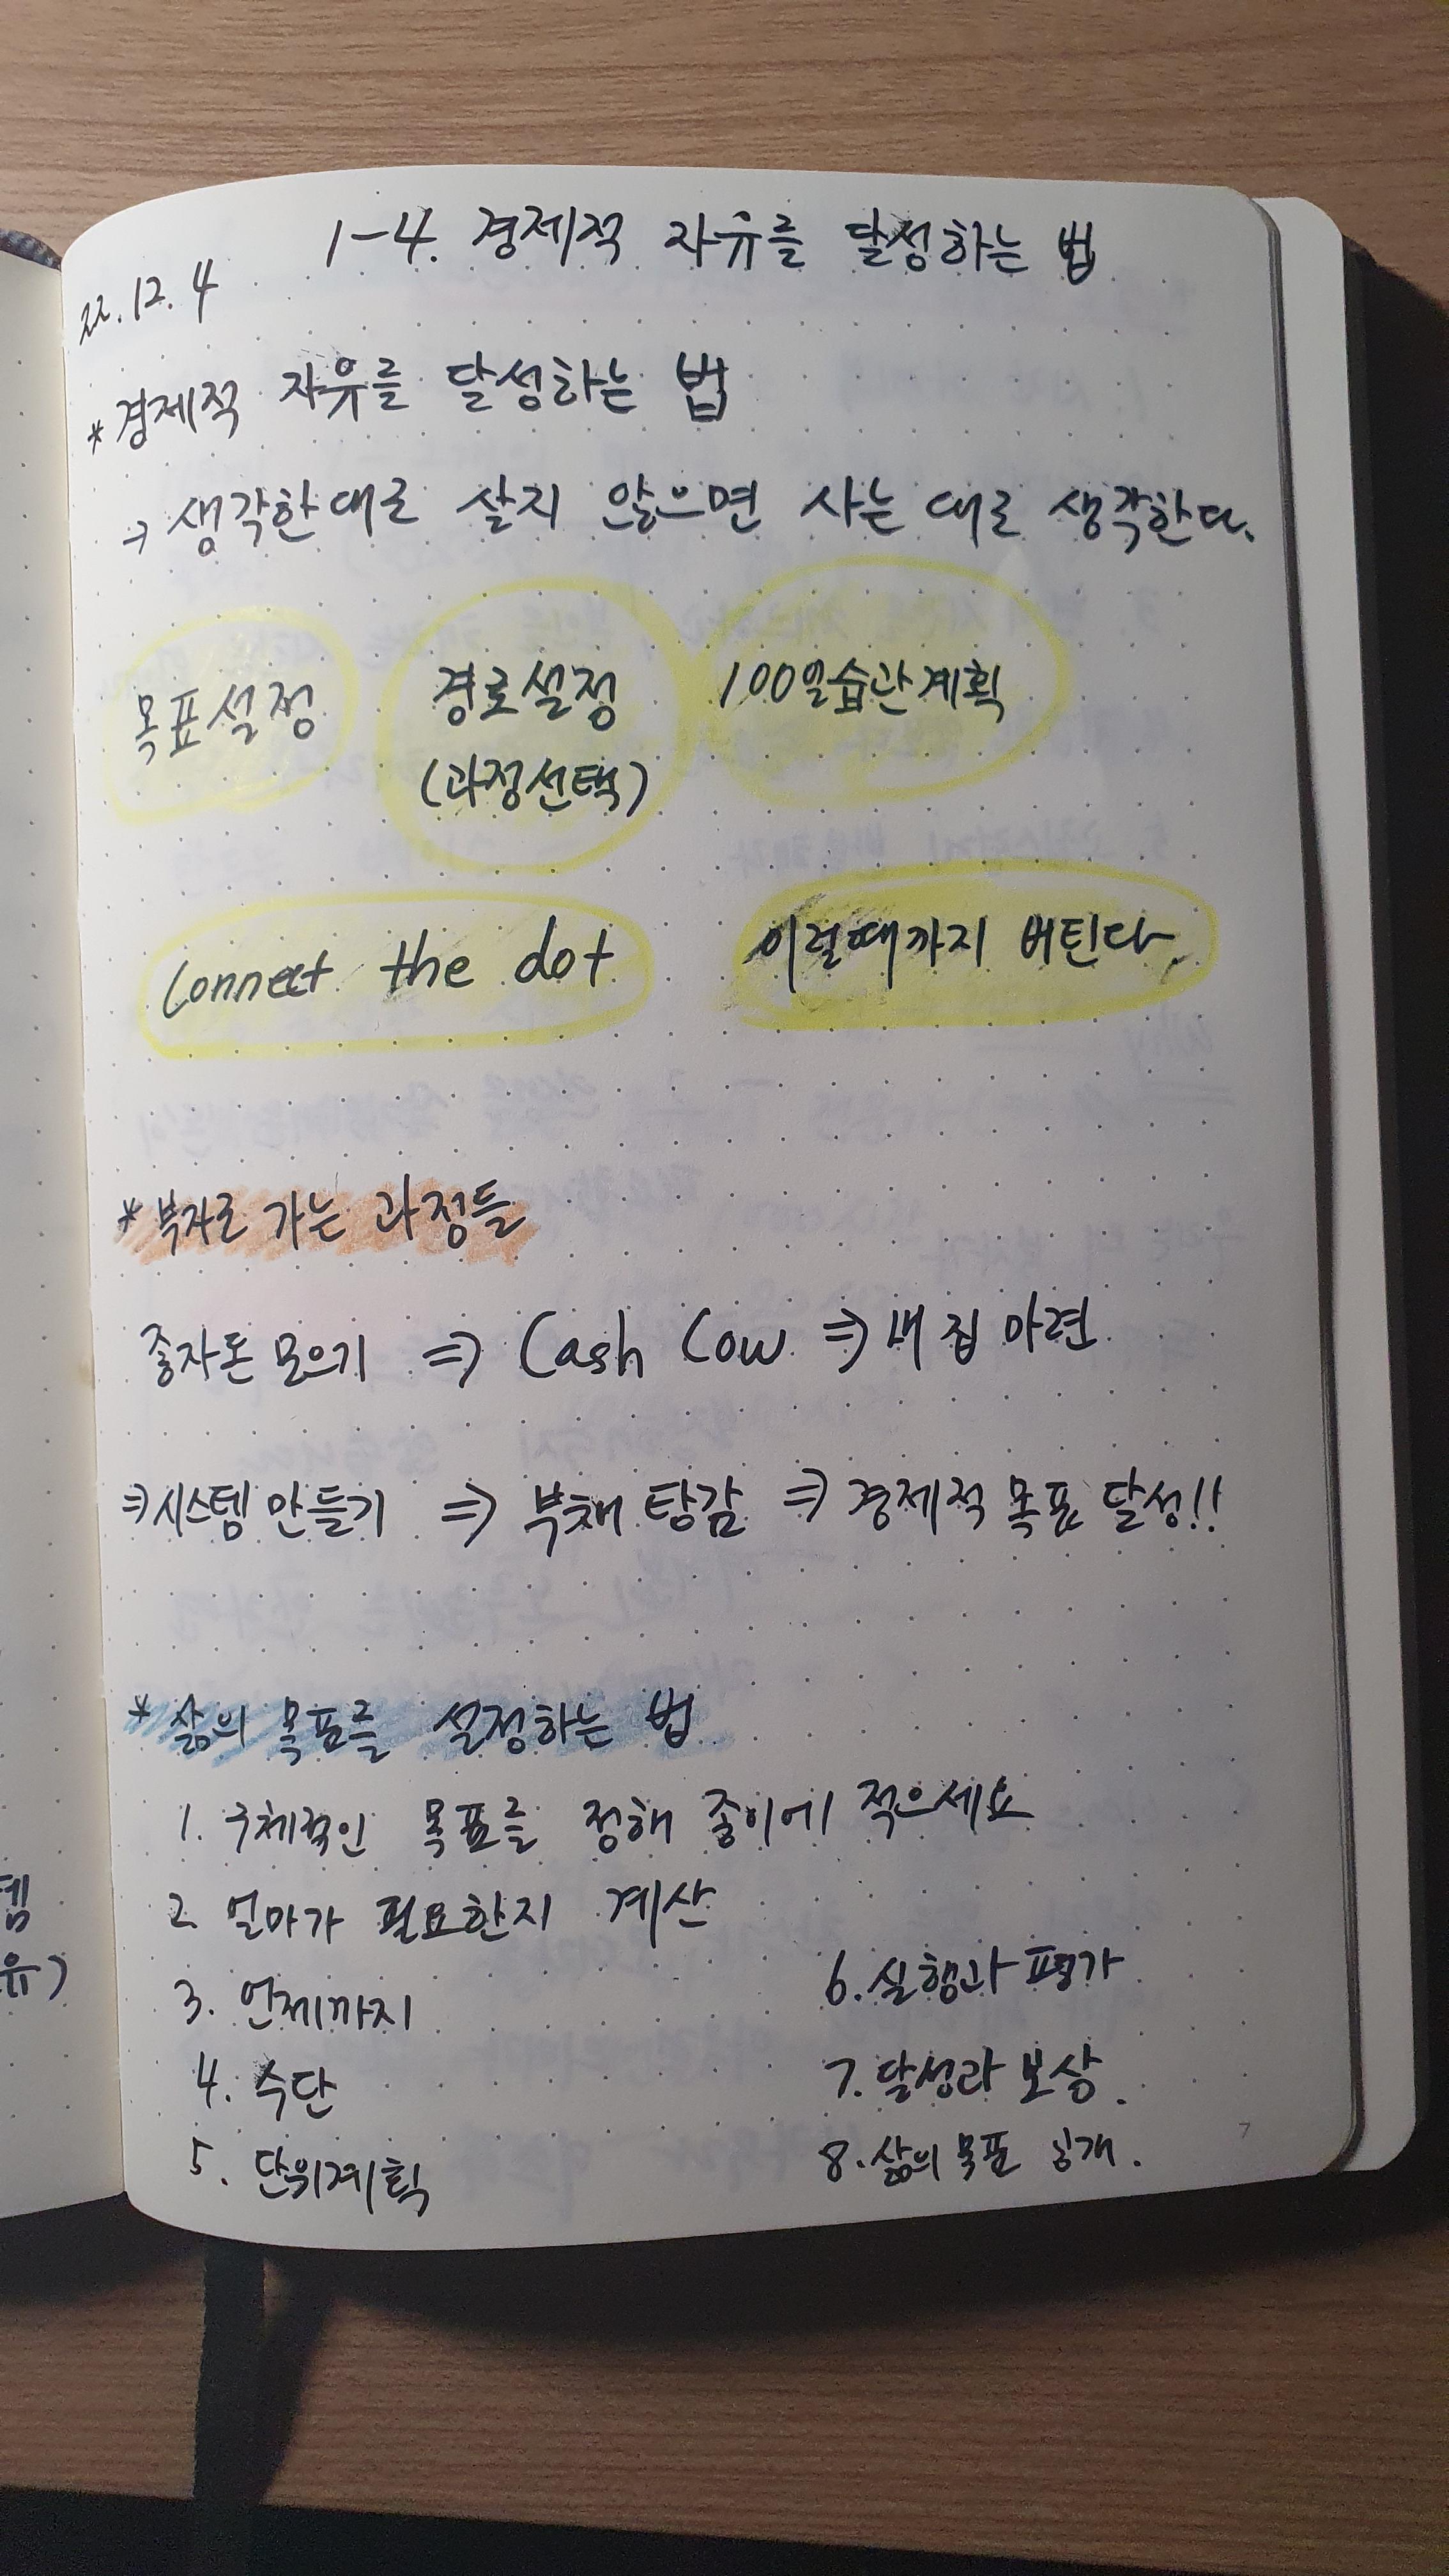 1-4. 경제적 자유를 달성하는 법
22.12.4
* 경제적 자유를 달성하는 법
→ 생각한대로 살지 않으면 사는 대로 생각한다.
목표설정 경로설정 100일습관계획
(과정선택)
Connect the dot 이럴때까지 버틴다.
* 부자로 가는 과정들
종자돈 모으기 ⇒ Cash Cow ⇒ 내 집 마련
⇒ 시스템 만들기 ⇒ 부채 탕감 ⇒ 경제적 목표 달성!!
* 삶의 목표를 설정하는 법
1. 구체적인 목표를 정해 종이에 적으세요
2. 얼마가 필요한지 계산
3. 언제까지
4. 수단
5. 단위계획
6. 실행과 평가
7. 달성과 보상.
8. 삶의 목표 공개.
7
템
유)